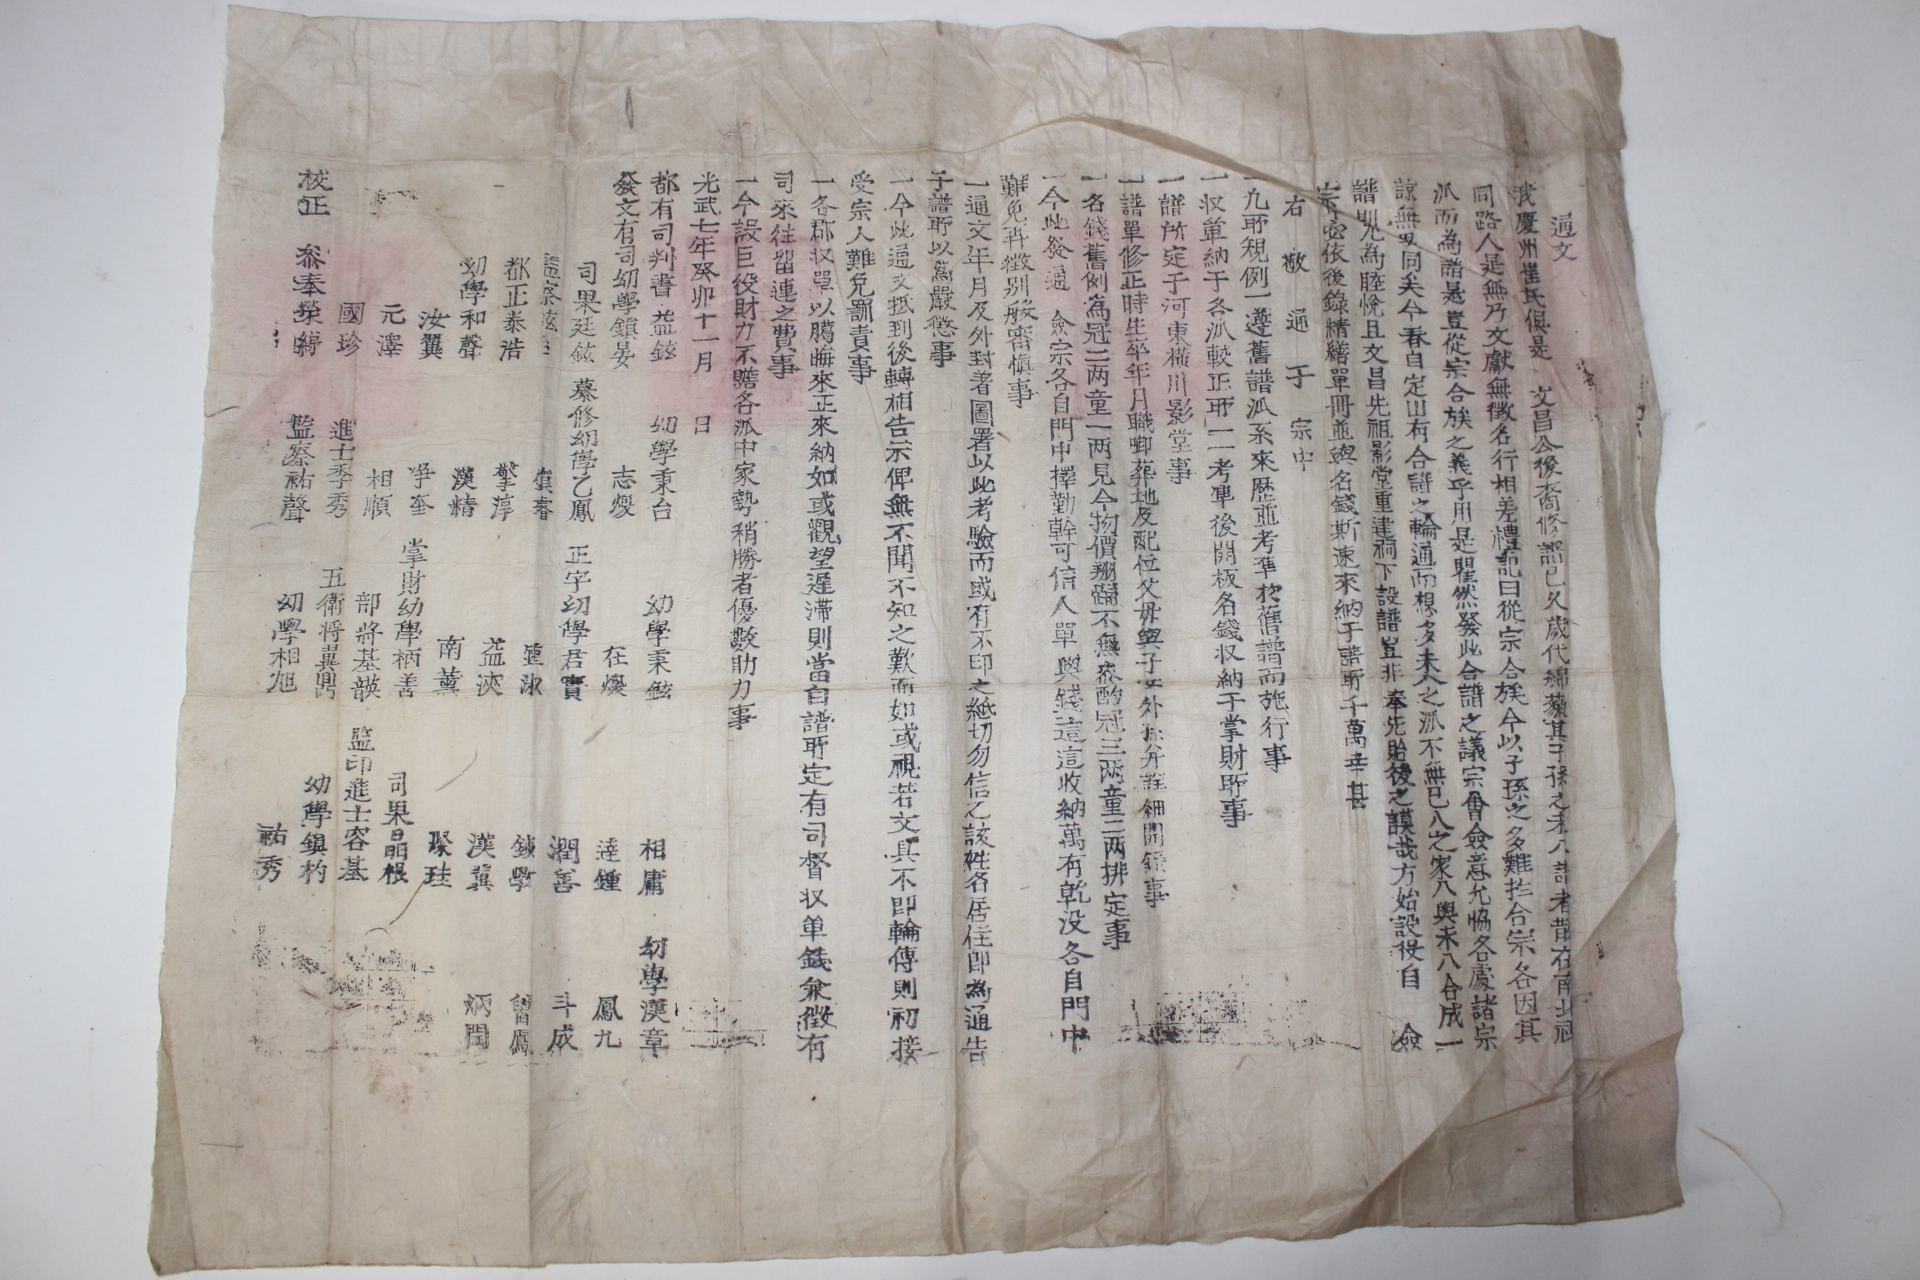 通文
我慶州崔氏俱是 文昌公後裔修譜已久歲代綿藐其子孫之未入譜者散在南北視
同路人是無乃文獻無徵名行相差禮記曰從宗合族今以子孫之多難於合宗各因其
派而為譜是豈從宗合族之義乎用是瞿然發此合譜之議宗會僉意允恊各處諸宗
諒無異同矣今春自定山有合譜之輪通而想多未入之派不無已入之家入與未入合成一
譜則允為睦悅且文昌先祖影堂重建祠下設譜豈非奉先貽後之謨哉方始設役自 僉
宗當依後錄精繕單冊並與名錢斯速來納于譜所千萬幸甚
右敬通于宗中
一凡所規例一遵舊譜派系來歷並考準於舊譜而施行事
一収單納于各派較正所一一考準後開板名錢収納于掌財所事
一譜所定于河東橫川影堂事
一譜單修正時生卒年月職啣葬地及配位父母與子女外孫分詳細開錄事
一名錢舊例為冠二兩童一兩見今物價翔騰不無參酌冠三兩童二兩排定事
一今此發通 僉宗各自門中擇勤幹可信人單與錢這這收納萬有乾没各自門中
難免再徵別般審愼事
一通文年月及外封著圖署以此考驗而或有不印之紙切勿信之該姓名居住即為通告
于譜所以為嚴懲事
一今此通文抵到後轉相告示俾無不聞不知之歎而如或視若文具不即輪傳則初接
受宗人難免罰責事
一各郡収單以臈晦來正來納如或觀望遲滯則當自譜所定有司督収單錢兼徵有
司來往留連之費事
一今設巨役財力不贍各派中家勢稍勝者優數助力事
光武七年癸卯十一月 日
都有司判書 益鉉 幼學秉台 幼學秉鉉 相庸 幼學漢章
發文有司幼學鎭晏 志燮 在燮 達鍾 鳳九
司果廷鉉 幕修幼學乙鳳 正字幼學君實 潤善 斗成
都正泰浩 擎淳 益浹 漢冀 炳閏
幼學和聲 漢精 南薰 琢珪
汝翼 掌財幼學柄善 司果昌根
元澤 相順 部將基韺 監印進士容基
國珍 進士季秀 五衛将翼騁 幼學鎭杓
校正 叅奉榮縛 監察祐聲 幼學相旭 祐秀